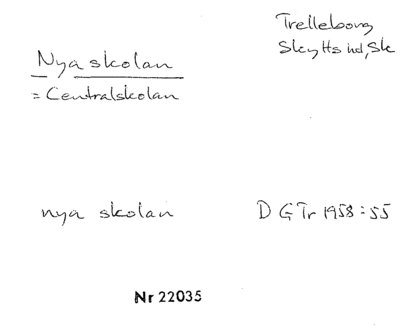 Trelleborg
Skytts hd, Sk
Nya skolan
= Centralskolan
nya skolan
D G Tr 1958 : 55
Nr 22035